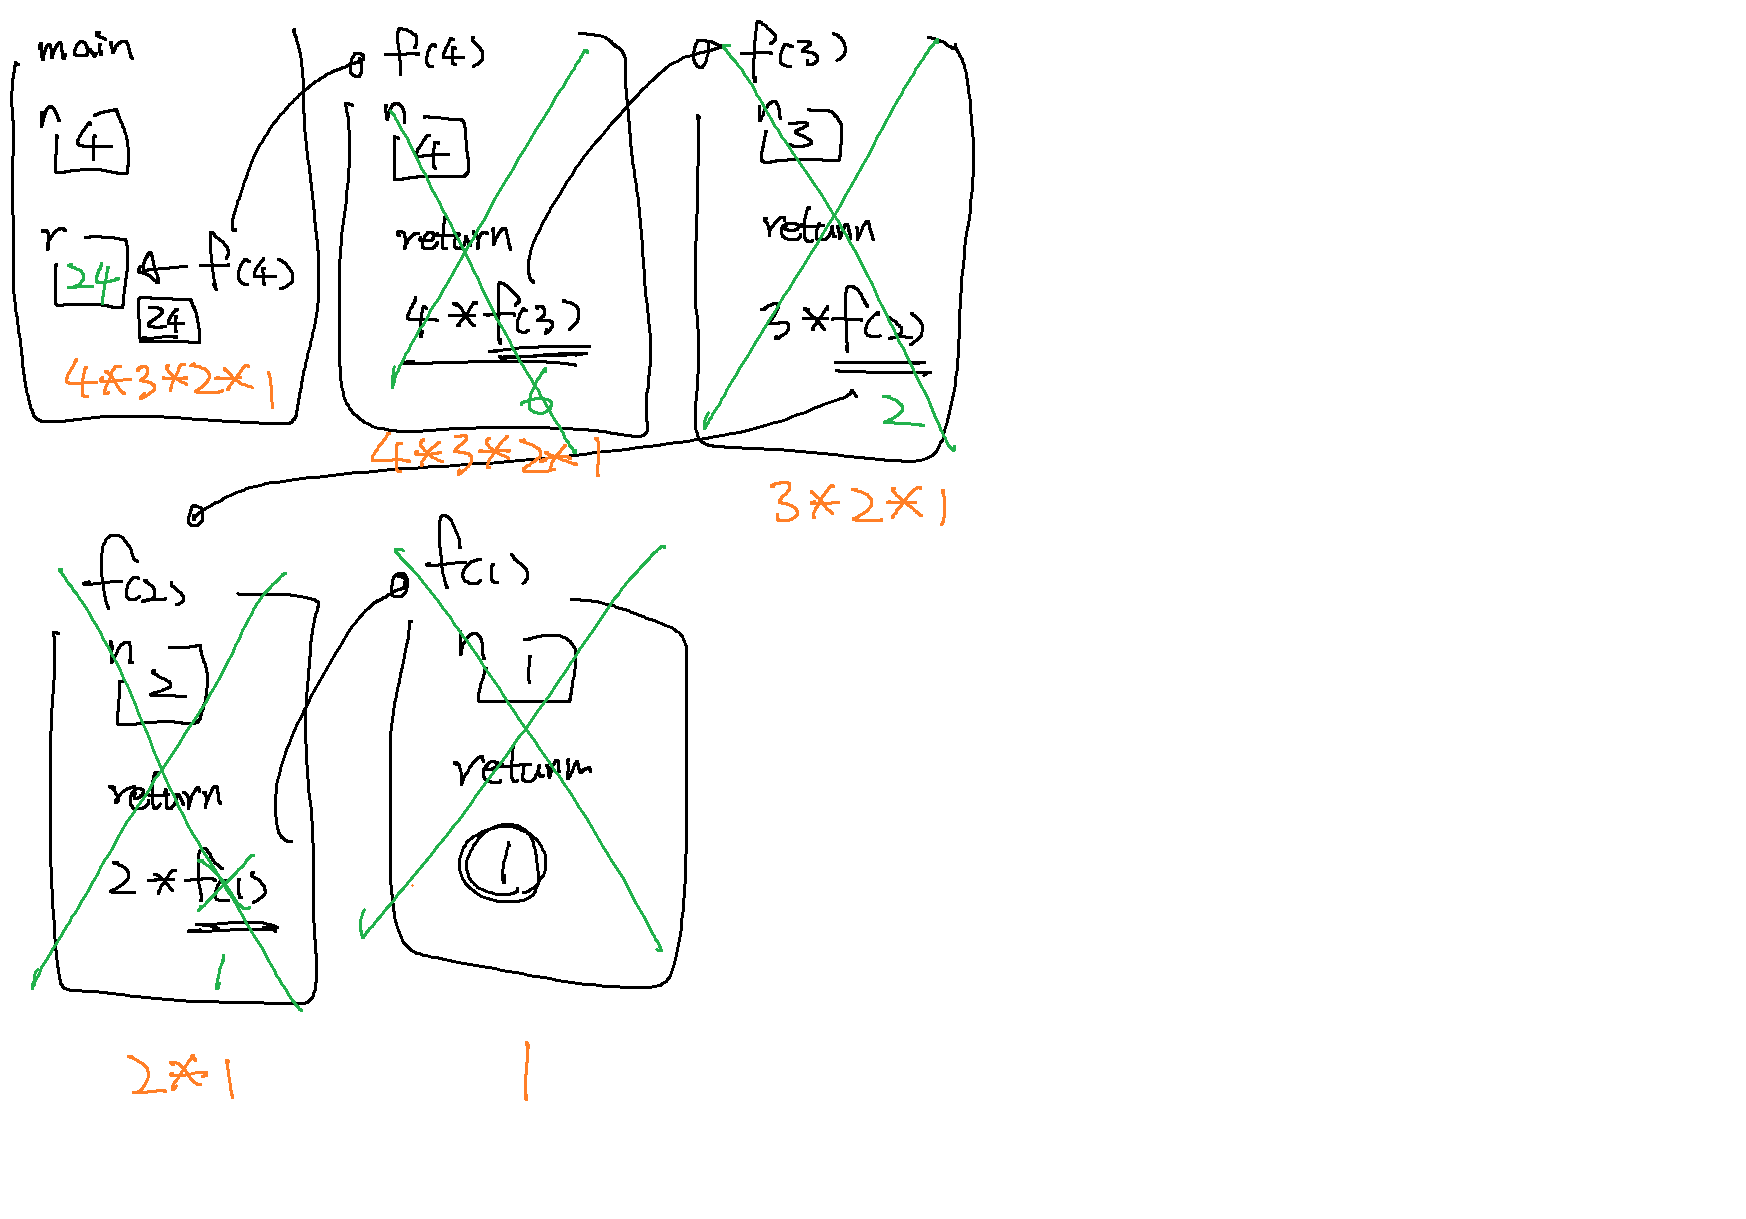 main
n
4
r
24 f(4)
24
4*3*2*1
f(4)
n
4
return
4*f(3)
6
4*3*2*1
f(3)
n
3
return
3*f(2)
2
3*2*1
f(2)
n
2
return
2*f(1)
1
2*1
f(1)
n
1
return
1
1